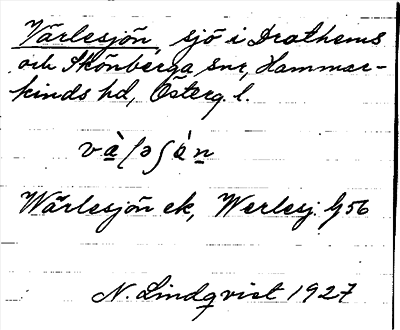 Värlesjön, sjö i Drothems
och Skönberga snr, Hammar-
kinds hd, Österg. l.
Wärlesjön ek, Werlesj: G 56
N. Lindqvist 1927